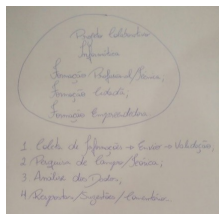 Projeto Colaborativo
Informática
Formação Profissional/Técnica;
Formação Cidadã;
Formação Empreendedora
1 Coleta de Informação → Envio → Validação;
2 Pesquisa de Campo/Técnica;
3 Análise dos Dados;
4 Respostas/Sugestões/Comentários